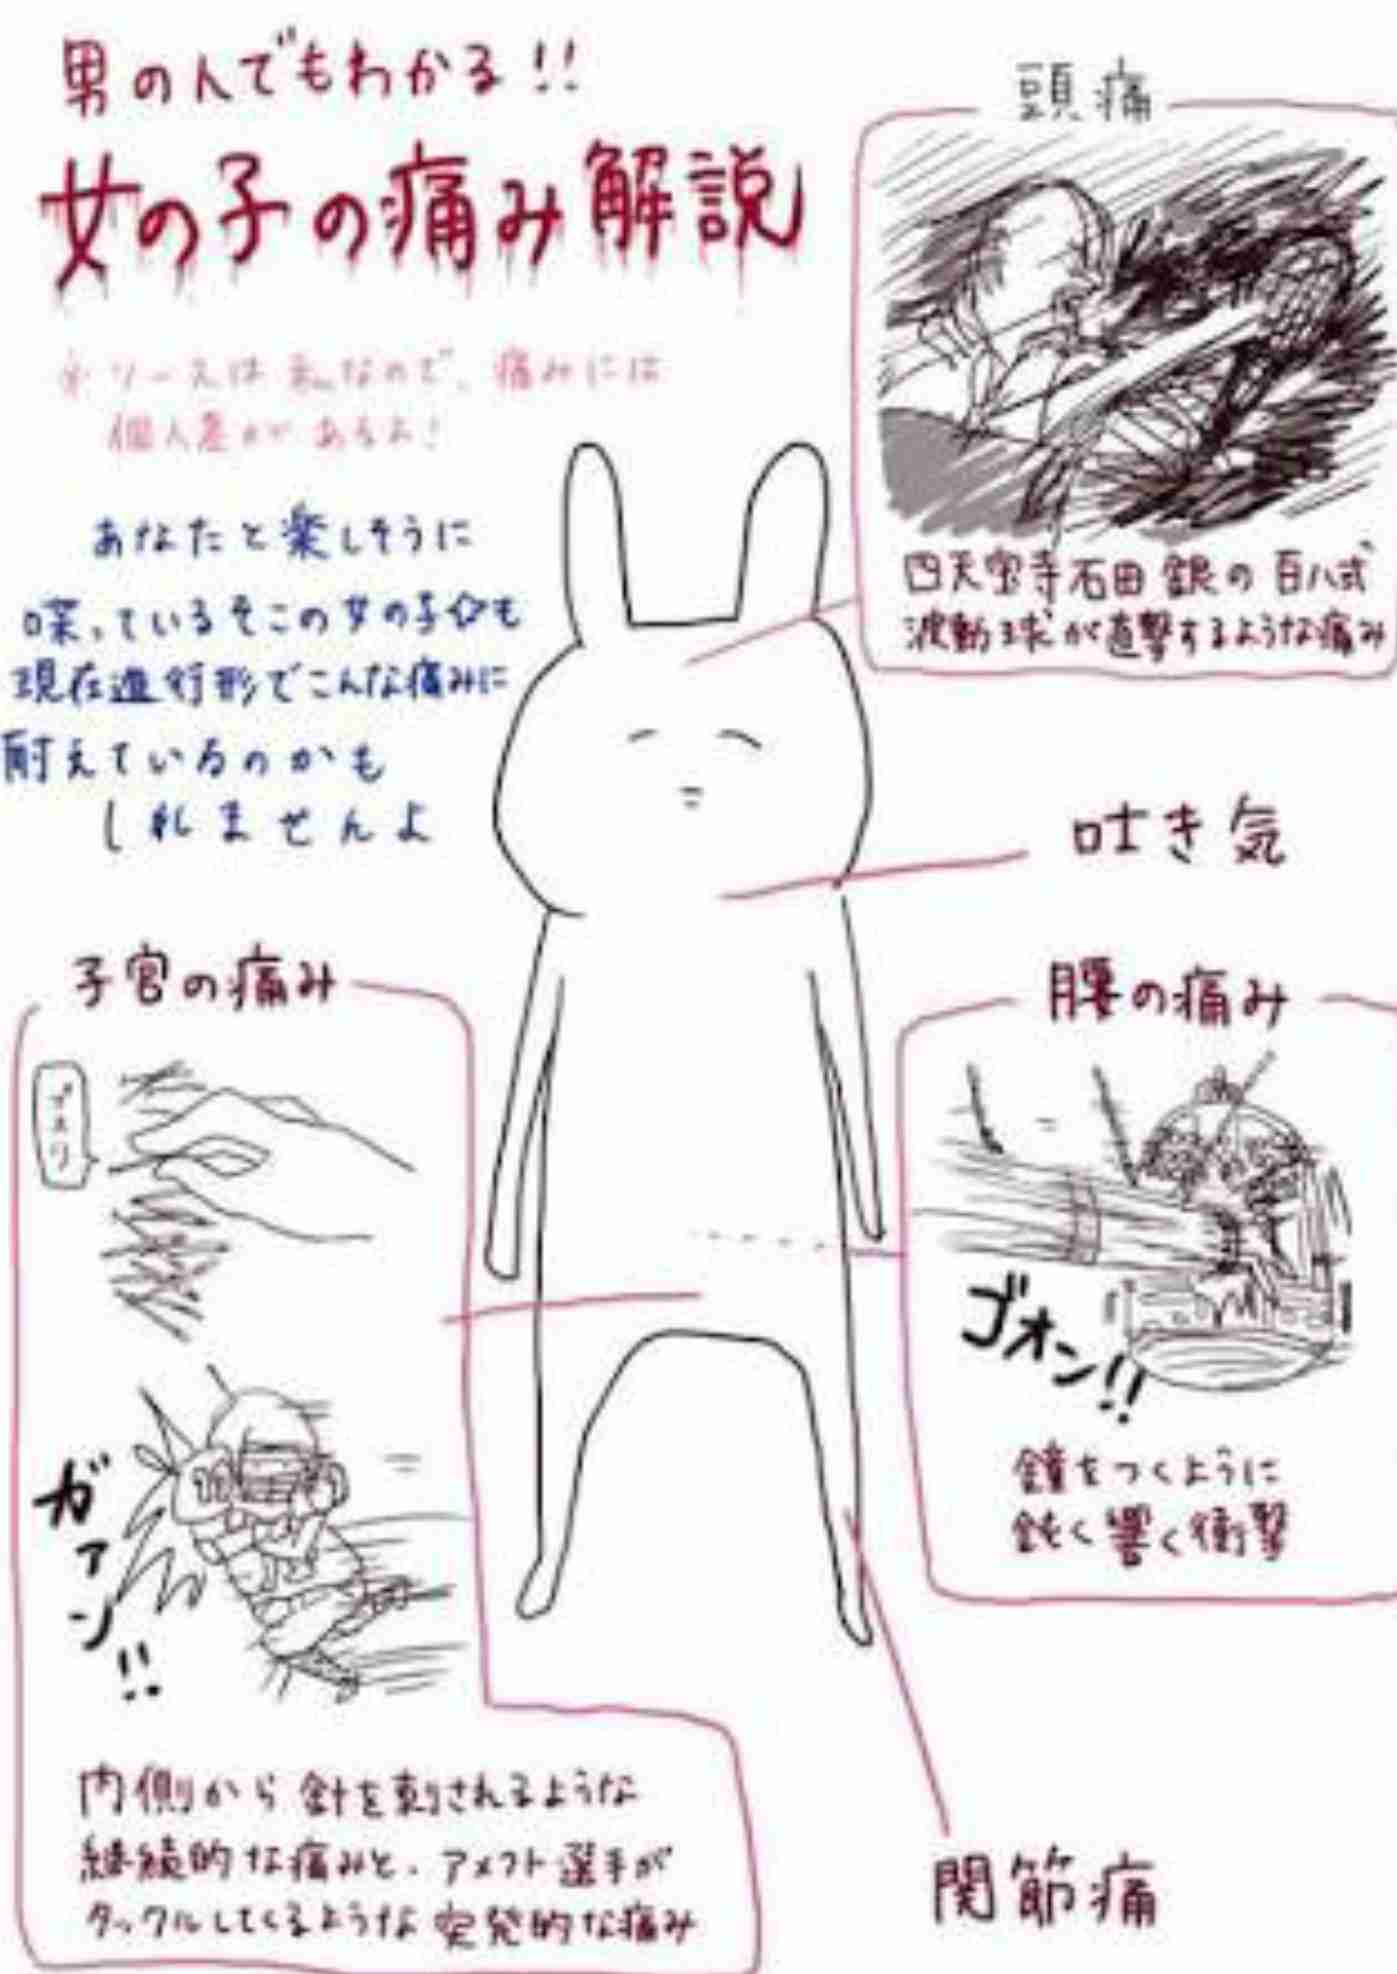 男の人でもわかる!!
女の子の痛み解説
※ソースは私なので、痛みには
個人差があるよ!
あなたと楽しそうに
喋っているそこの女の子☆も
現在進行形でこんな痛みに
耐えているのかも
しれませんよ
頭痛
四天宝寺石田銀の百八式
波動球が直撃するような痛み
吐き気
子宮の痛み
ブスリ
ガァン!!
内側から針を刺されるような
継続的な痛みと、アメフト選手が
タックルしてくるような突発的な痛み
腰の痛み
ゴオン!!
鐘をつくように
鈍く響く衝撃
関節痛